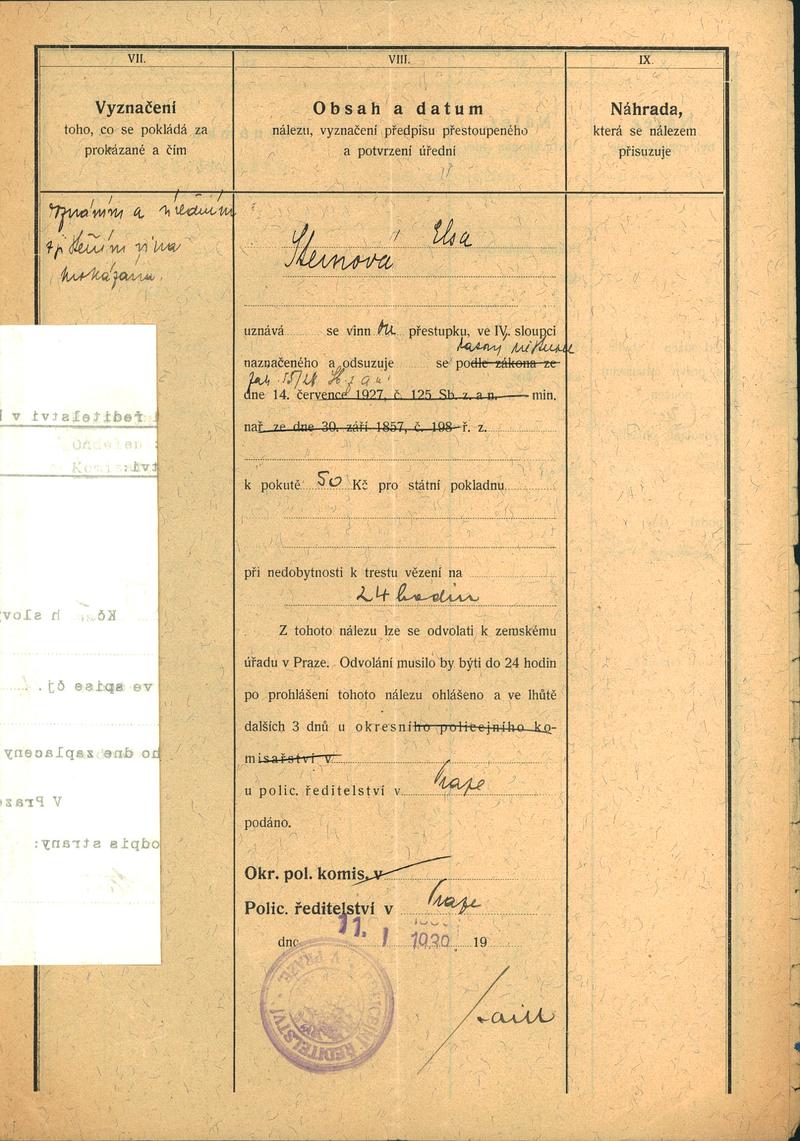 VII.
Vyznačení
toho, co se pokládá za
prokázané a čím
VIII.
Obsah a datum
nálezu, vyznačení předpisu přestoupeného
a potvrzení úřední
IX.
Náhrada,
která se nálezem
přisuzuje
a
vina
Elsa
Steinová
uznává se vinn ou přestupku, ve IV. sloupci
naznačeného a odsuzuje se podle zákona ze
dne 14. července 1927, č. 125 Sb. z. a n. min.
nař. ze dne 30. září 1857, č. 198 ř. z.
k pokutě 50 Kč pro státní pokladnu
při nedobytnosti k trestu vězení na
24 hodin
Z tohoto nálezu lze se odvolati k zemskému
úřadu v Praze. Odvolání musilo by býti do 24 hodin
po prohlášení tohoto nálezu ohlášeno a ve lhůtě
dalších 3 dnů u okresního policejního ko-
misařství v
u polic. ředitelství v Praze
podáno.
Okr. pol. komis. v
Polic. ředitelství v Praze
dne 11. I 1930 19
ředitelství v
Oddělen
Komis
Kč h slov
ve spise čj.
ho dne zaplaceny
V Praze
odpis strany:
POLICEJNÍ ŘEDITELSTVÍ V PRAZE